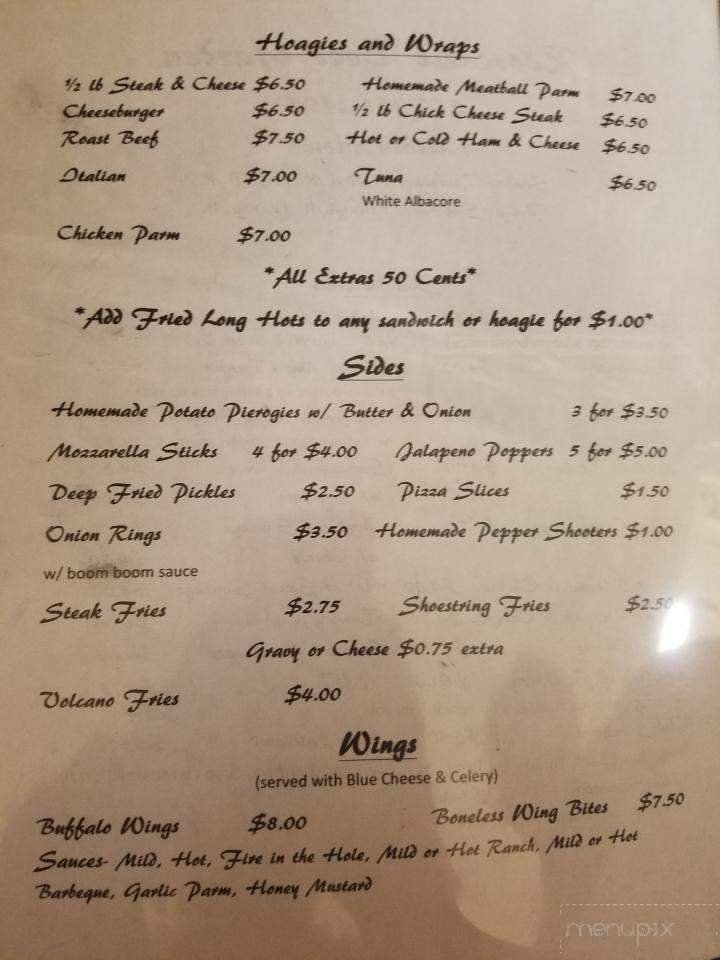 Hoagies and Wraps
1/2 lb Steak & Cheese $6.50 Homemade Meatball Parm $7.00
Cheeseburger $6.50 1/2 lb Chick Cheese Steak $6.50
Roast Beef $7.50 Hot or Cold Ham & Cheese $6.50
Italian $7.00 Tuna $6.50
White Albacore
Chicken Parm $7.00
*All Extras 50 Cents*
*Add Fried Long Hots to any sandwich or hoagie for $1.00*
Sides
Homemade Potato Pierogies w/ Butter & Onion 3 for $3.50
Mozzarella Sticks 4 for $4.00 Jalapeno Poppers 5 for $5.00
Deep Fried Pickles $2.50 Pizza Slices $1.50
Onion Rings $3.50 Homemade Pepper Shooters $1.00
w/ boom boom sauce
Steak Fries $2.75 Shoestring Fries $2.50
Gravy or Cheese $0.75 extra
Volcano Fries $4.00
Wings
(served with Blue Cheese & Celery)
Buffalo Wings $8.00 Boneless Wing Bites $7.50
Sauces- Mild, Hot, Fire in the Hole, Mild or Hot Ranch, Mild or Hot
Barbeque, Garlic Parm, Honey Mustard
menupix